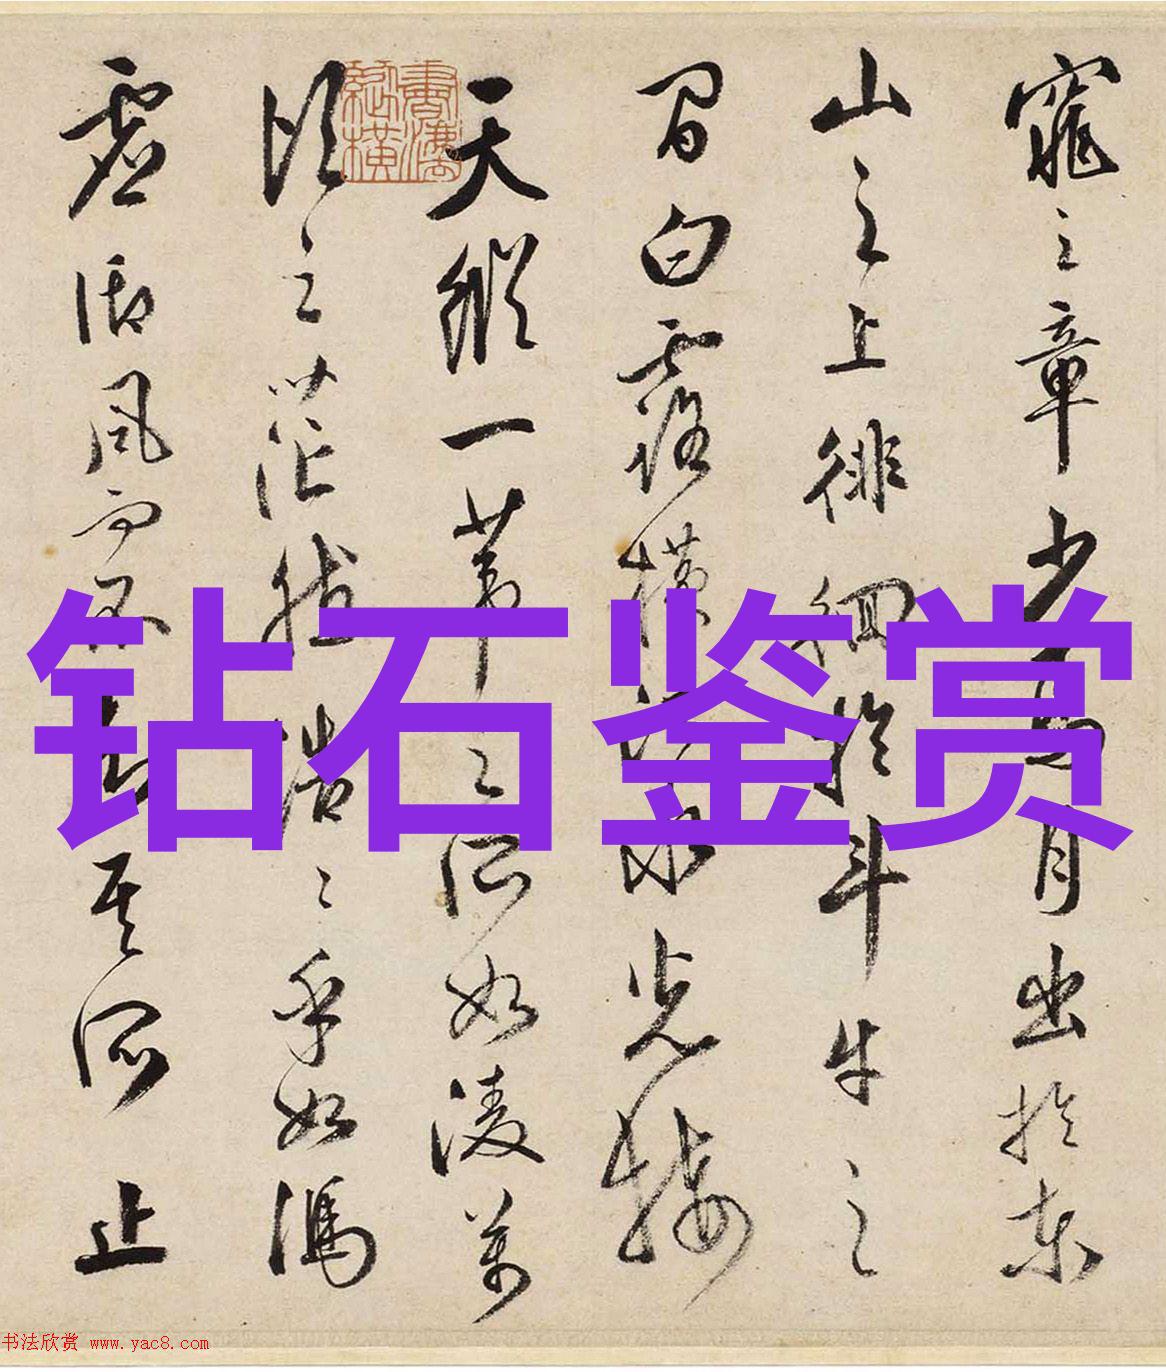 窕之章少焉月出於東
山之上徘徊於斗牛之
間白露横江水光接
天縱一葦之所如凌萬
頃之茫然浩〻乎如馮
虚御風而不知其所止
钻石鉴赏
书法欣赏 www.yac8.com